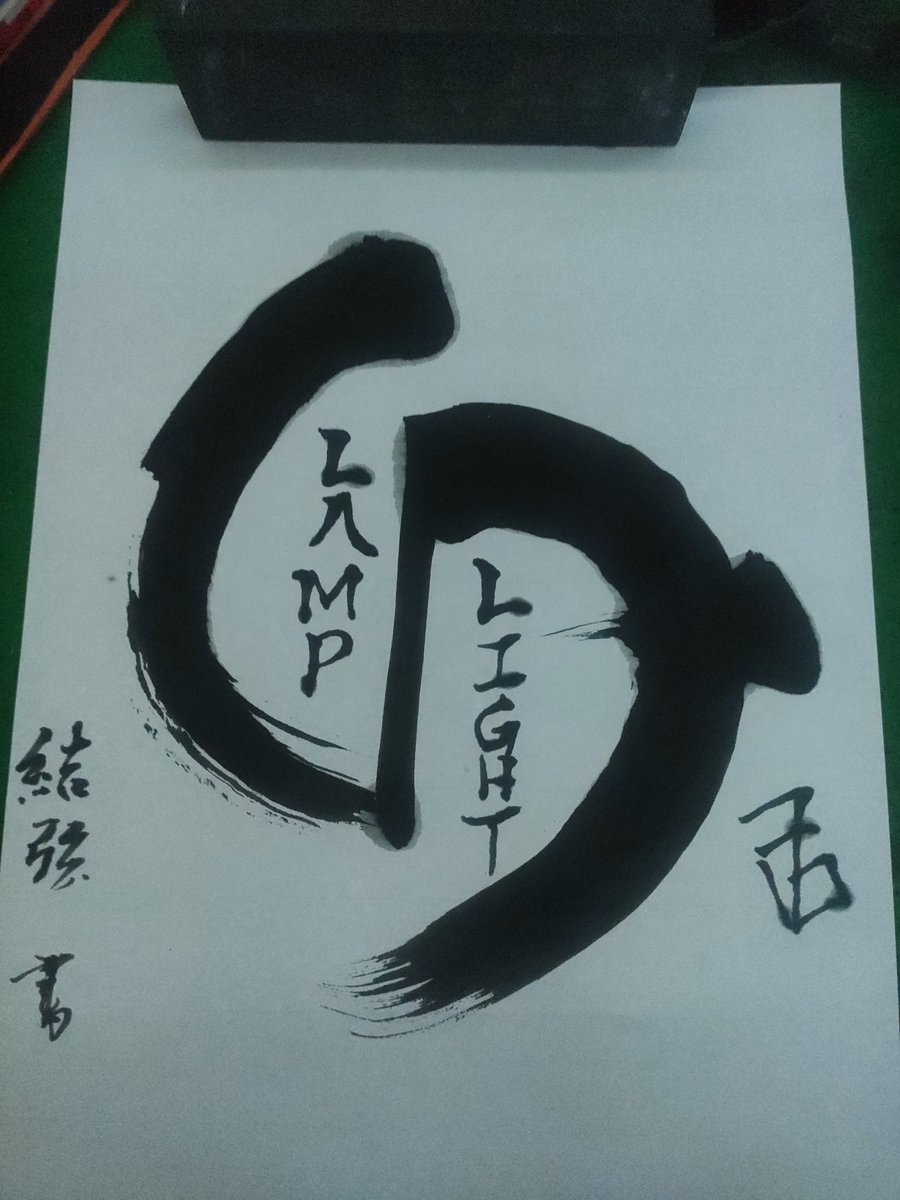 LAMP
LIGHT
結弦 書